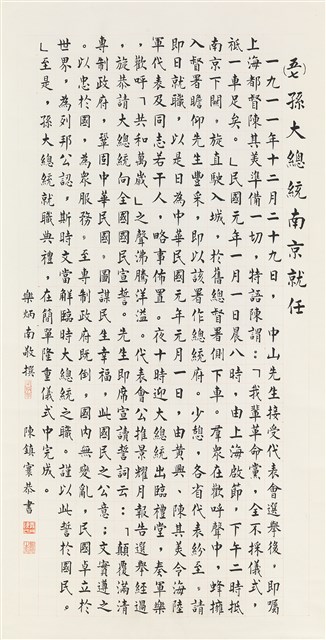 (五七)孫大總統南京就任
一九一一年十二月二十九日,中山先生接受代表會選舉後,即囑
上海都督陳其美準備一切,特語陳謂:「我輩革命黨,全不採儀式,
祇一車足矣。」民國元年一月一日晨八時,由上海啟節,下午二時抵
南京下關,旋直駛入城,於舊總督署側下車。羣眾在歡呼聲中,蜂擁
入督署瞻仰先生豐采,即以該署作總統府。少憩,各省代表紛至,請
即日就職,以是日為中華民國元年元月一日,由黃興、陳其美令海陸
軍代表及同志若干人,略事佈置。夜十時迎大總統出臨禮堂,奏軍樂
,歡呼「共和萬歲」之聲沸騰洋溢。代表會公推景耀月報告選舉經過
,旋恭請大總統向全國國民宣誓。先生即席宣讀誓詞云:「顛覆滿清
專制政府,鞏固中華民國,圖謀民生幸福,此國民之公意;文實遵之
。以忠於國,為眾服務。至專制政府既倒,國內無變亂,民國卓立於
世界,為列邦公認,斯時文當解臨時大總統之職。謹以此誓於國民。
」至是,孫大總統就職典禮,在簡單隆重儀式中完成。
樂炳南敬撰 陳鎮寰恭書